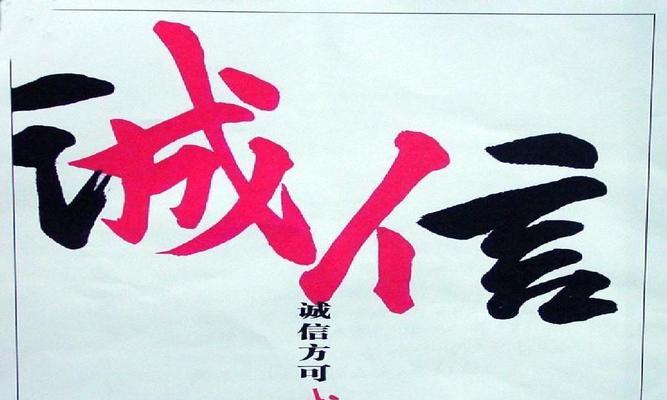 诚信
诚信方可